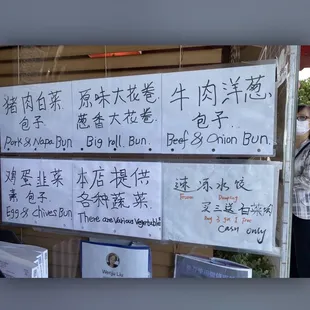 猪肉白菜
包子
Pork & Napa Bun
原味大花卷
葱香大花卷
Big roll Bun
牛肉洋葱
包子
Beef & Onion Bun
鸡蛋韭菜
素包子
Egg & chives Bun
本店提供
各种蔬菜
There are various vegetable
速冻水饺
Frozen Dumpling
买三送
白菜
Buy 3 get 1 free
Cash only